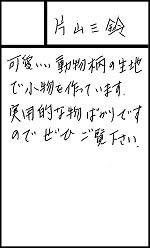 片山三鈴
可愛いい動物柄の生地
で小物を作っています.
実用的な物ばかりです
のでぜひご覧下さい.